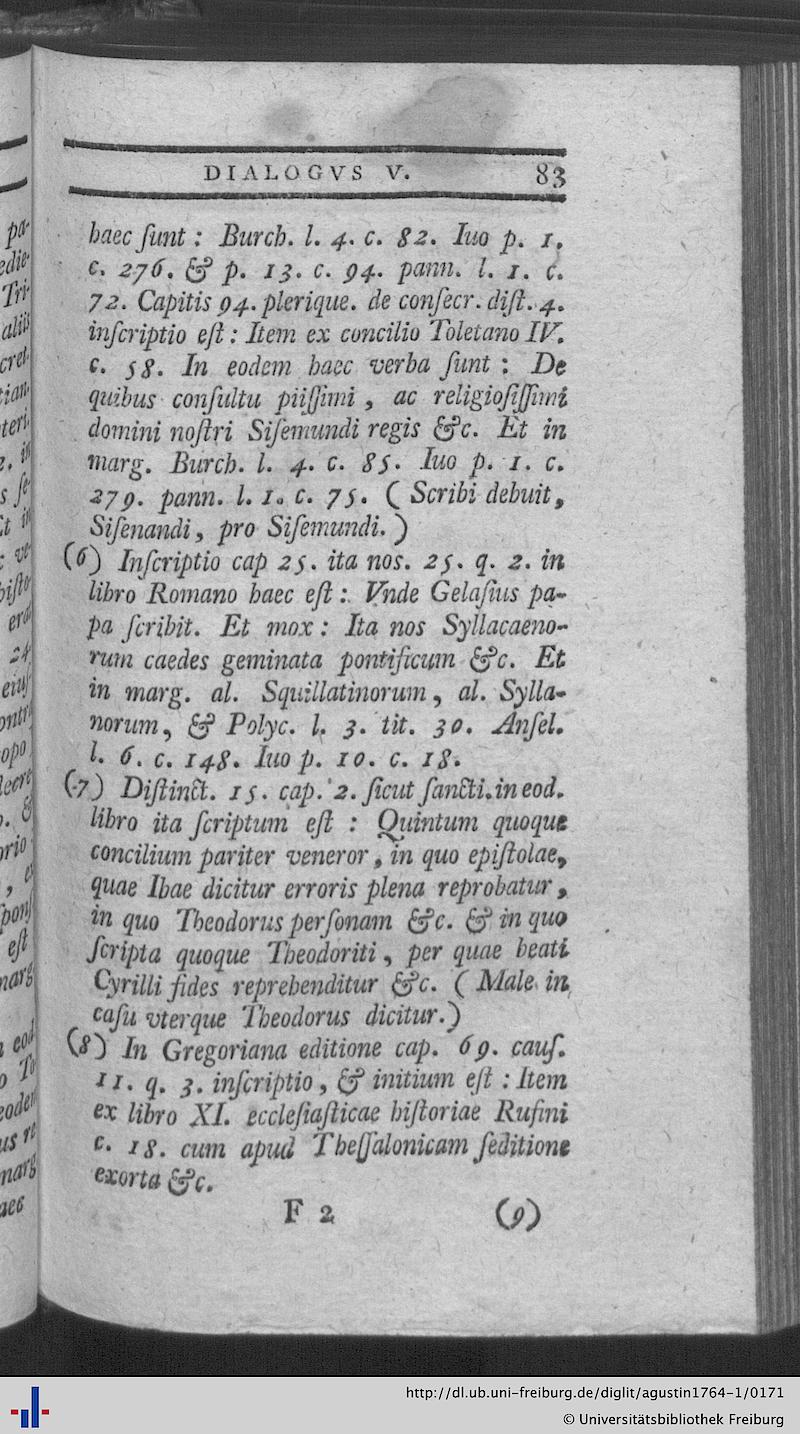 DIALOGVS V. 83
haec ſunt : Burch. l. 4. c. 82. Iuo p. 1.
c. 276. & p. 13. c. 94. pann. l. 1. c.
72. Capitis 94. plerique. de conſecr. diſt. 4.
inſcriptio eſt : Item ex concilio Toletano IV.
c. 58. In eodem haec verba ſunt : De
quibus conſultu piiſſimi , ac religioſiſſimi
domini noſtri Siſemundi regis &c. Et in
marg. Burch. l. 4. c. 85. Iuo p. 1. c.
279. pann. l. 1. c. 75. ( Scribi debuit,
Siſenandi, pro Siſemundi. )
(6) Inſcriptio cap 25. ita nos. 25. q. 2. in
libro Romano haec eſt : Vnde Gelaſius pa-
pa ſcribit. Et mox : Ita nos Syllacaeno-
rum caedes geminata pontificum &c. Et
in marg. al. Squillatinorum, al. Sylla-
norum, & Polyc. l. 3. tit. 30. Anſel.
l. 6. c. 148. Iuo p. 10. c. 18.
(7) Diſtinct. 15. cap. 2. ſicut ſancti. in eod.
libro ita ſcriptum eſt : Quintum quoque
concilium pariter veneror, in quo epiſtolae,
quae Ibae dicitur erroris plena reprobatur,
in quo Theodorus perſonam &c. & in quo
ſcripta quoque Theodoriti, per quae beati
Cyrilli fides reprehenditur &c. ( Male in
caſu vterque Theodorus dicitur.)
(8) In Gregoriana editione cap. 69. cauſ.
11. q. 3. inſcriptio, & initium eſt : Item
ex libro XI. eccleſiaſticae hiſtoriae Rufini
c. 18. cum apud Theſſalonicam ſeditione
exorta &c.
F 2 (9)
http://dl.ub.uni-freiburg.de/diglit/agustin1764-1/0171
© Universitätsbibliothek Freiburg